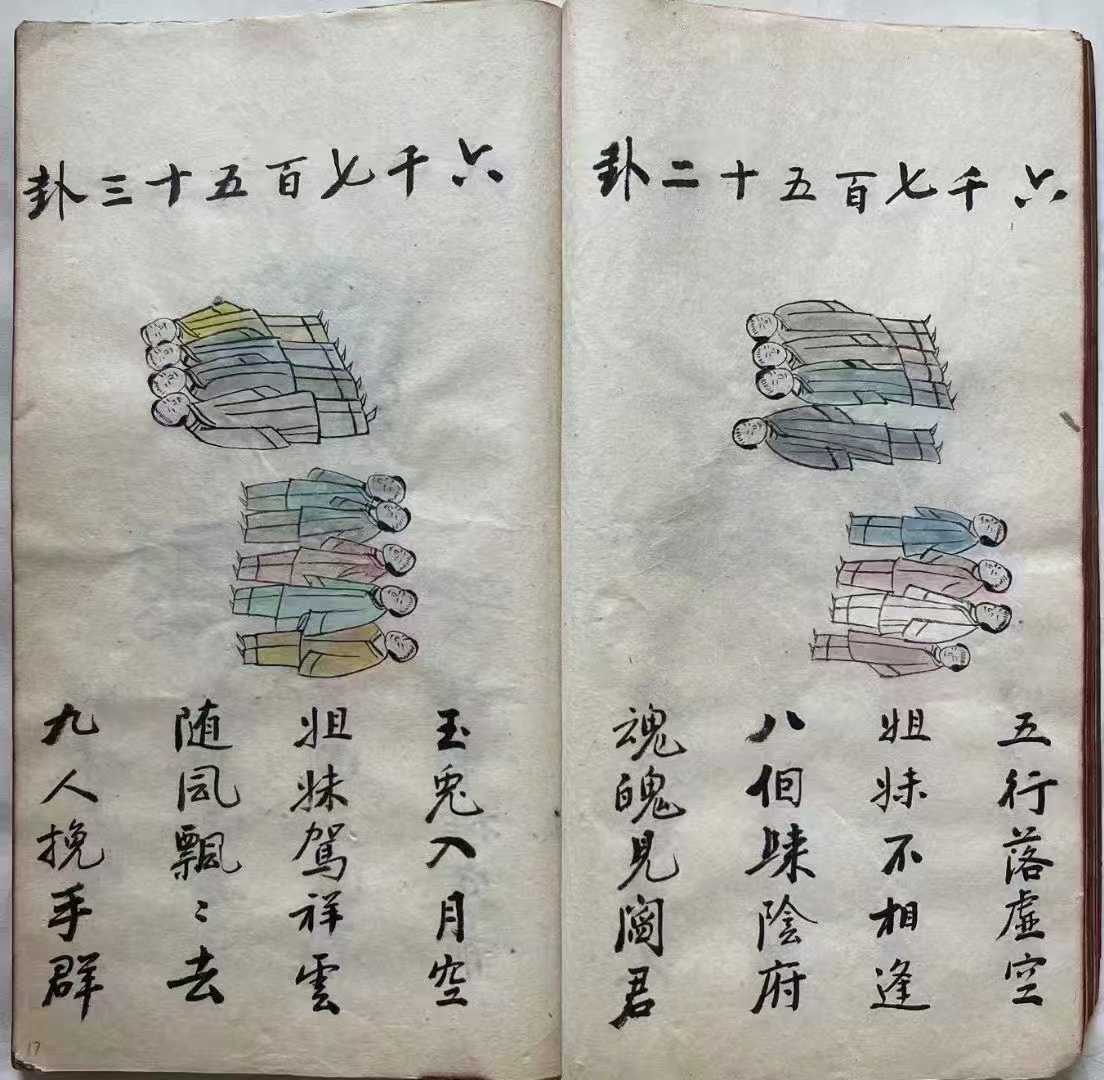 六千七百五十二卦
五行落虛空
姐妹不相逢
八個歸陰府
魂魄見閻君
六千七百五十三卦
玉兎入月空
姐妹駕祥雲
随風飄〻去
九人挽手群
17